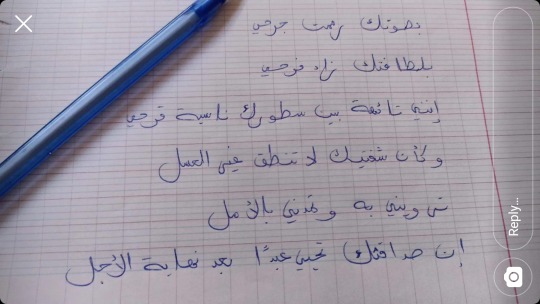 بصوتك رممت جرحي
بلطافتك زاد فرحي
إنني تائهة بين سطورك ناسية قرحي
وكأن شفتيك لا تنطق غير العسل
ترويني به وتمدني بالأمل
إن صداقتك تحيي عبدًا بعد نهاية الأجل
Reply...